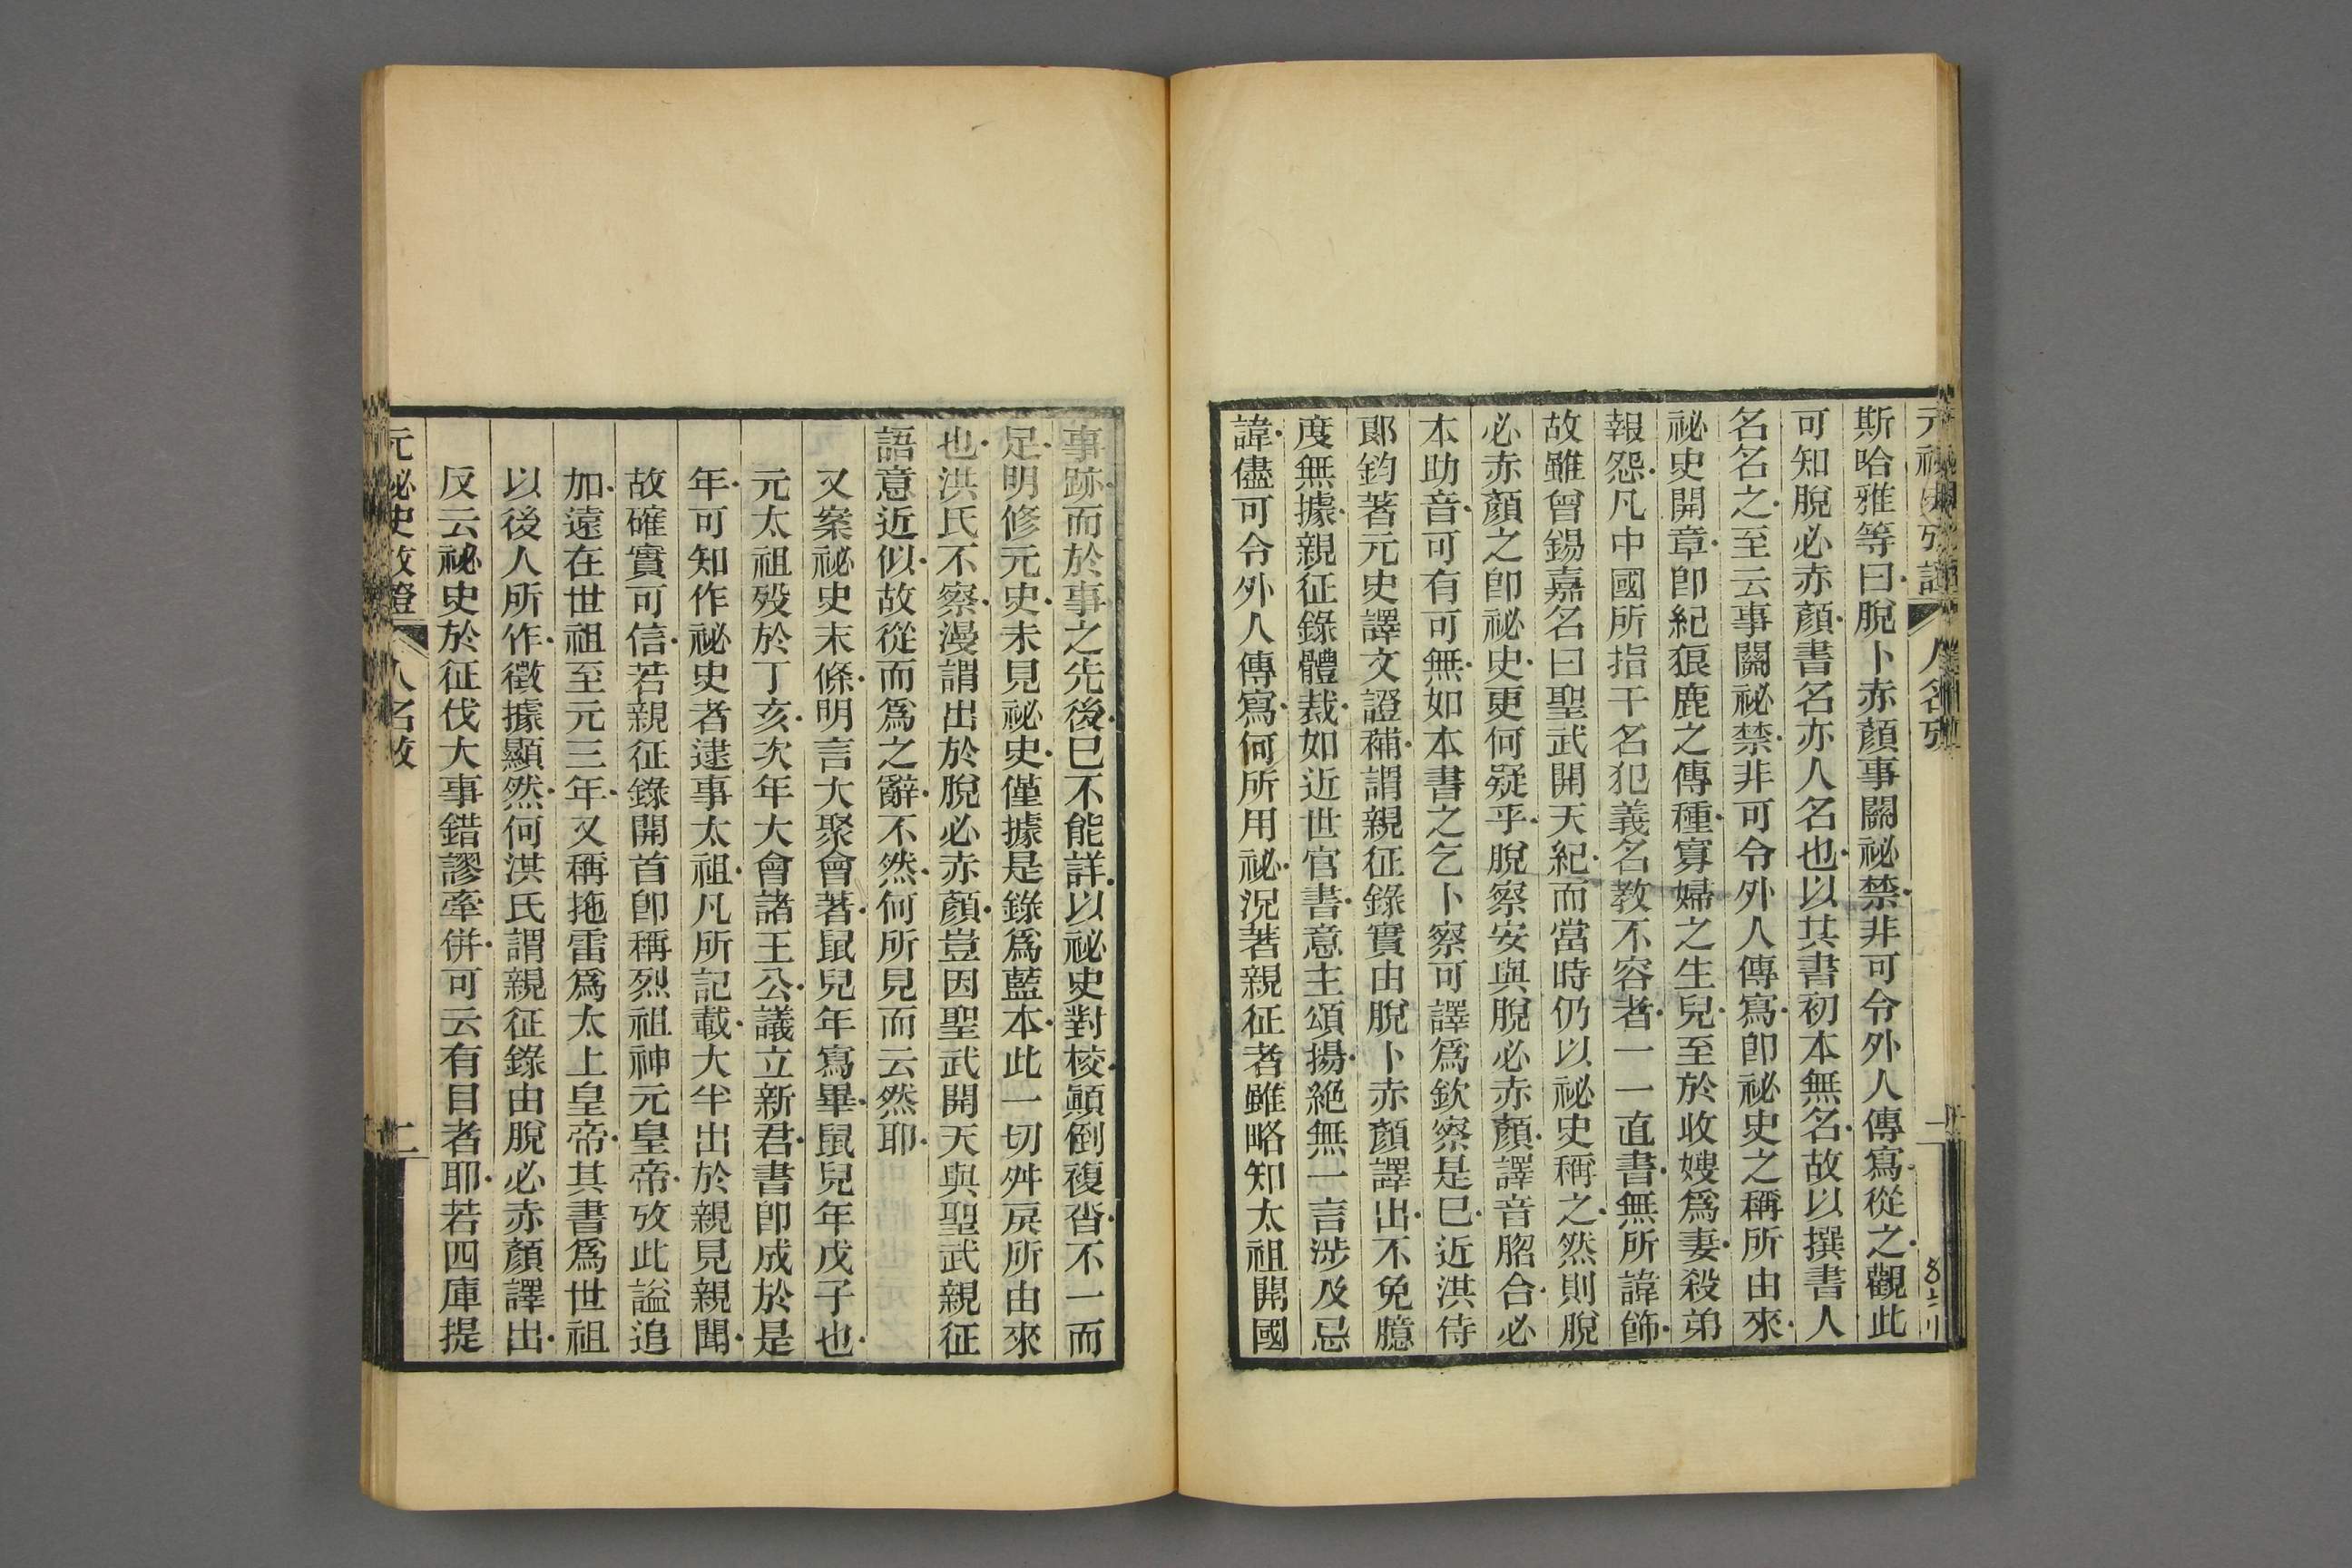 斯哈雅等曰脫卜赤顏事關祕禁非可令外人傳寫從之觀此
可知脫必赤顏書名亦人名也以其書初本無名故以撰書人
名名之至云事關祕禁非可令外人傳寫卽祕史之稱所由來
祕史開章卽紀狼鹿之傳種寡婦之生兒至於收嫂爲妻殺弟
報怨凡中國所指干名犯義名教不容者一一直書無所諱飾
故雖曾錫嘉名曰聖武開天紀而當時仍以祕史稱之然則脫
必赤顏之卽祕史更何疑乎脫察安與脫必赤顏譯音脗合必
本助音可有可無如本書之乞卜察可譯爲欽察是已近洪侍
郞鈞著元史譯文證補謂親征錄實由脫卜赤顏譯出不免臆
度無據親征錄體裁如近世官書意主頌揚絕無一言涉及忌
諱儘可令外人傳寫何所用祕況著親征者雖略知太祖開國
事跡而於事之先後已不能詳以祕史對校顚倒複沓不一而
足明修元史未見祕史僅據是錄爲藍本此一切舛戾所由來
也洪氏不察漫謂出於脫必赤顏豈因聖武開天與聖武親征
語意近似故從而爲之辭不然何所見而云然耶
又案祕史末條明言大聚會著鼠兒年寫畢鼠兒年戊子也
元太祖歿於丁亥次年大會諸王公議立新君書卽成於是
年可知作祕史者逮事太祖凡所記載大半出於親見親聞
故確實可信若親征錄開首卽稱烈祖神元皇帝攷此謚追
加遠在世祖至元三年又稱拖雷爲太上皇帝其書爲世祖
以後人所作徵據顯然何洪氏謂親征錄由脫必赤顏譯出
反云祕史於征伐大事錯謬牽併可云有目者耶若四庫提
元祕史攷證 人名攷 二